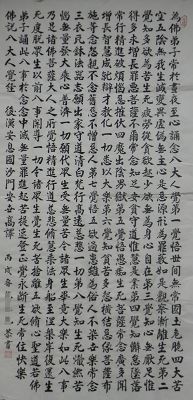 為佛弟子常於晝夜至心誦念八大人覺第一覺悟世間無常國土危脆四大苦
空五陰無我生滅變異虛偽無主心是惡源形為罪藪如是觀察漸離生死第二
覺知多欲為苦生死疲勞從貪欲起少欲無為身心自在第三覺知心無厭足惟
得多求增長罪惡菩薩不爾常念知足安貧守道惟慧是業第四覺知懈怠墜落
常行精進破煩惱惡摧伏四魔出陰界獄第五覺悟愚癡生死菩薩常念廣學多聞
增長智慧成就辯才教化一切悉以大樂第六覺知貧苦多怨橫結惡緣菩薩布
施等念怨親不念舊惡不憎惡人第七覺悟五欲過患雖為俗人不染世樂常念
三衣瓦鉢法器志願出家守道清白梵行高遠慈悲一切第八覺知生死熾然苦
惱無量發大乘心普濟一切願代眾生受無量苦令諸眾生畢竟大樂如此八事
乃是諸佛菩薩大人之所覺悟精進行道慈悲修慧乘法身船至涅槃岸復還生
死度脫眾生以前八事開導一切令諸眾生覺生死苦捨離五欲修心聖道若佛
弟子誦此八事於念念中滅無量罪進趣菩提速登正覺永斷生死常住快樂
佛說八大人覺經 後漢安息國沙門安世高譯 丙戌春 書